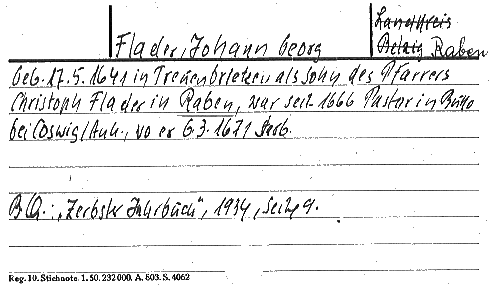 Landkreis
Flader, Johann Georg Belzig Raben
geb. 17.5.1641 in Treuenbrietzen als Sohn des Pfarrers
Christoph Flader in Raben, war seit 1666 Pastor in Buko
bei Coswig/Anh., wo er 6.3.1671 starb.
B.Q.: „Zerbster Jahrbuch", 1934, Seite 9.
Reg. 10. Stichnote. 1. 50. 232 000. A. 803. S. 4062